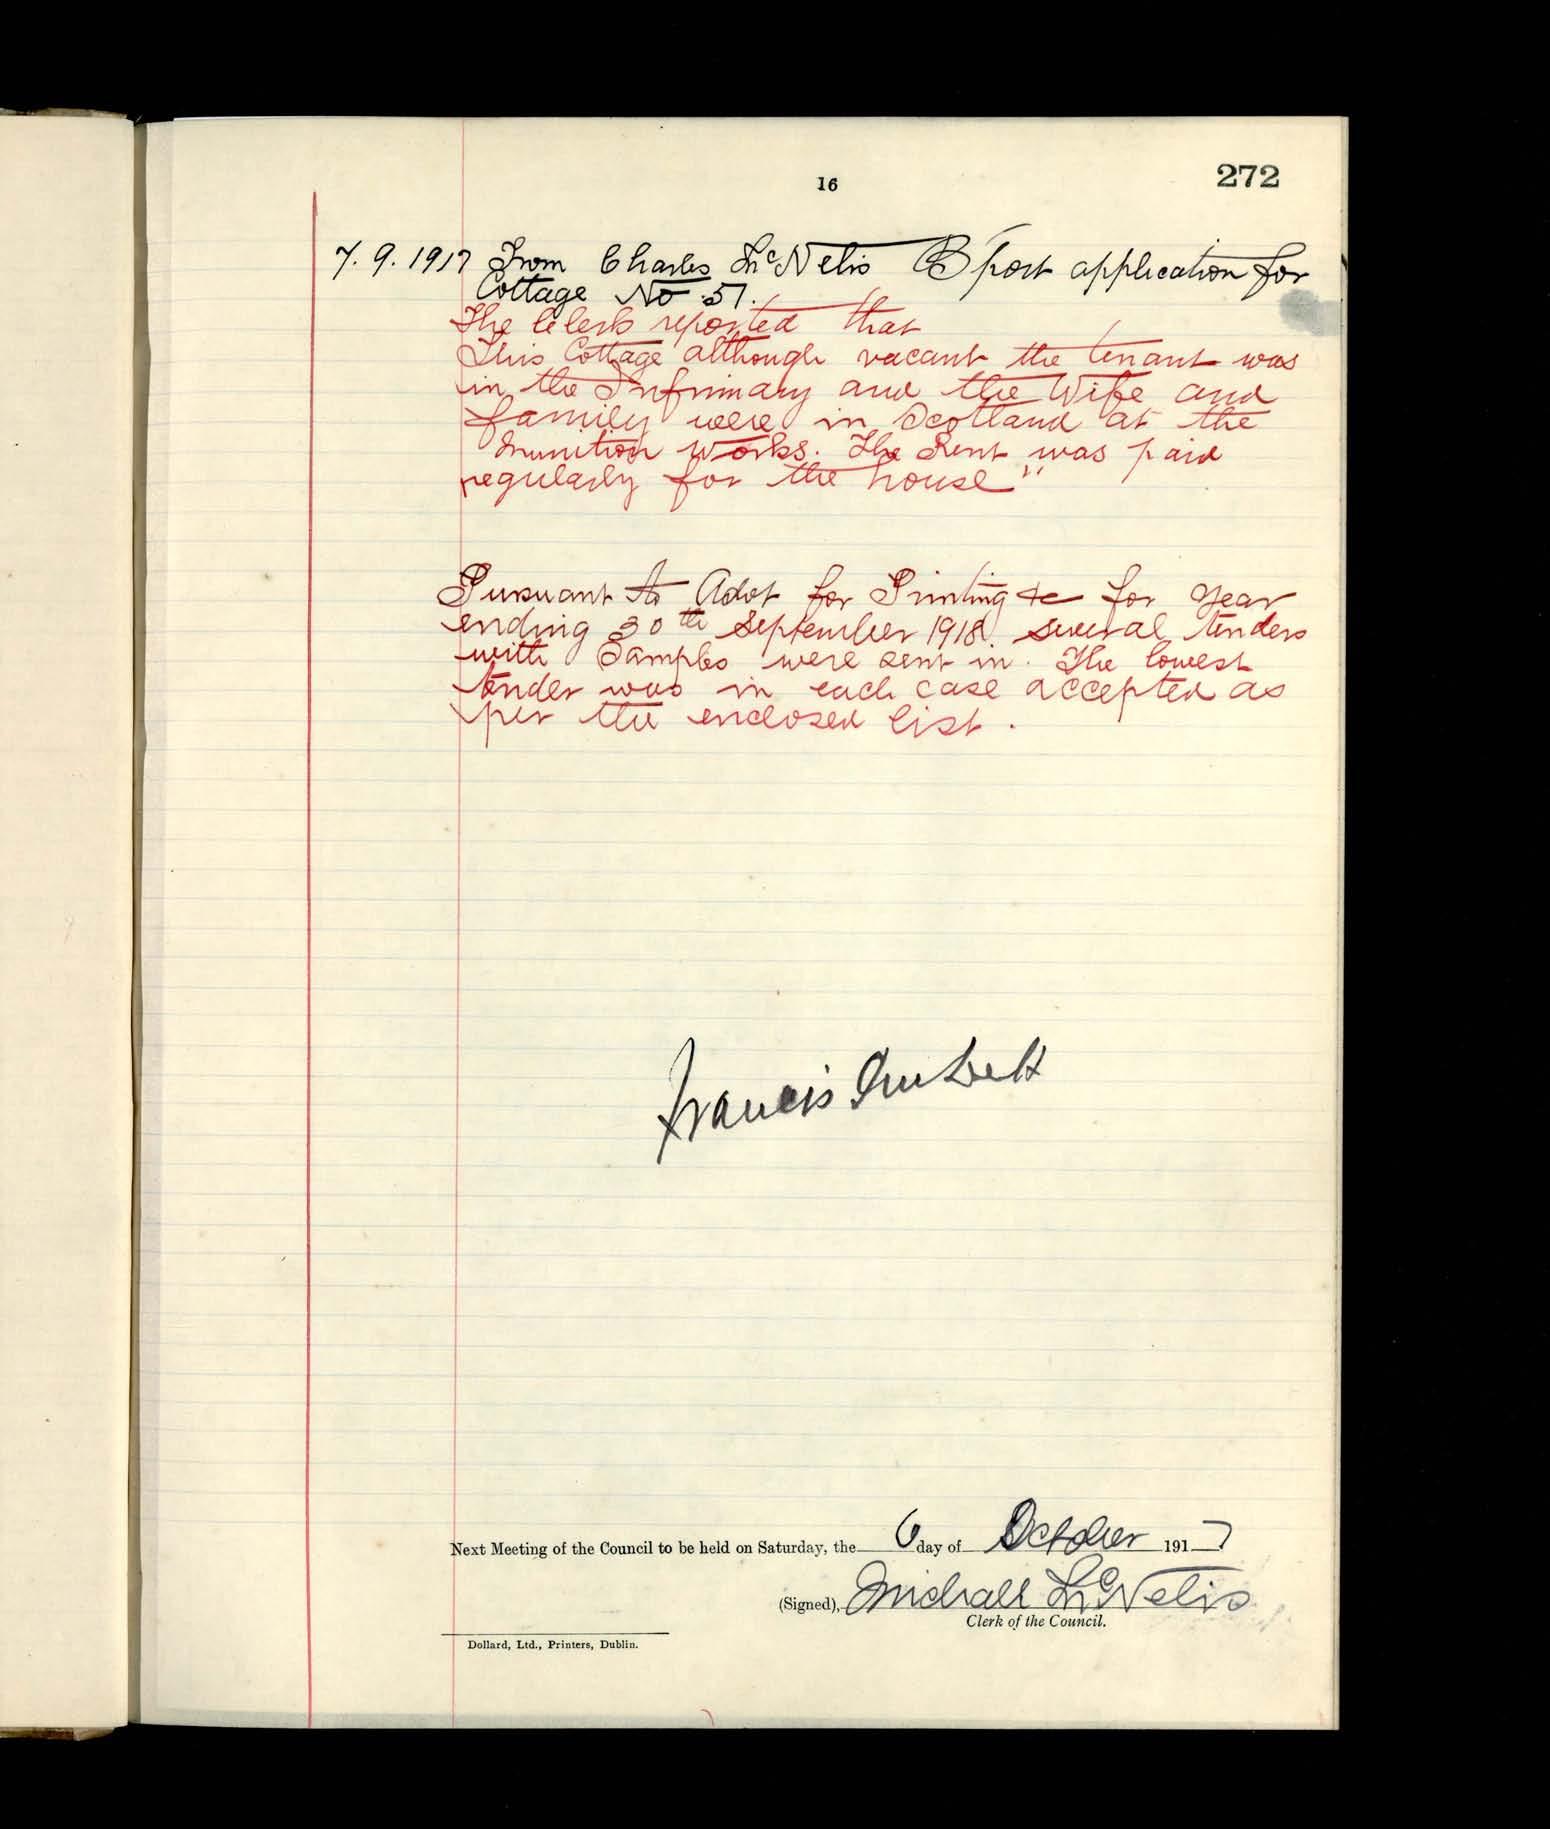 16
272
7. 9. 1917 From Charles McNelis B'port application for
Cottage No 57.
The Clerk reported that
This Cottage although vacant the tenant was
in the Infirmary and the Wife and
family were in Scotland at the
Munition Works. The Rent was paid
regularly for the house"
Pursuant to Advt for Printing &c for year
ending 30th September 1918 several tenders
with Samples were sent in. The lowest
tender was in each case accepted as
per the enclosed list.
Francis
Next Meeting of the Council to be held on Saturday, the 6 day of October 1917
(Signed), Michall McNelis
Clerk of the Council.
Dollard, Ltd., Printers, Dublin.